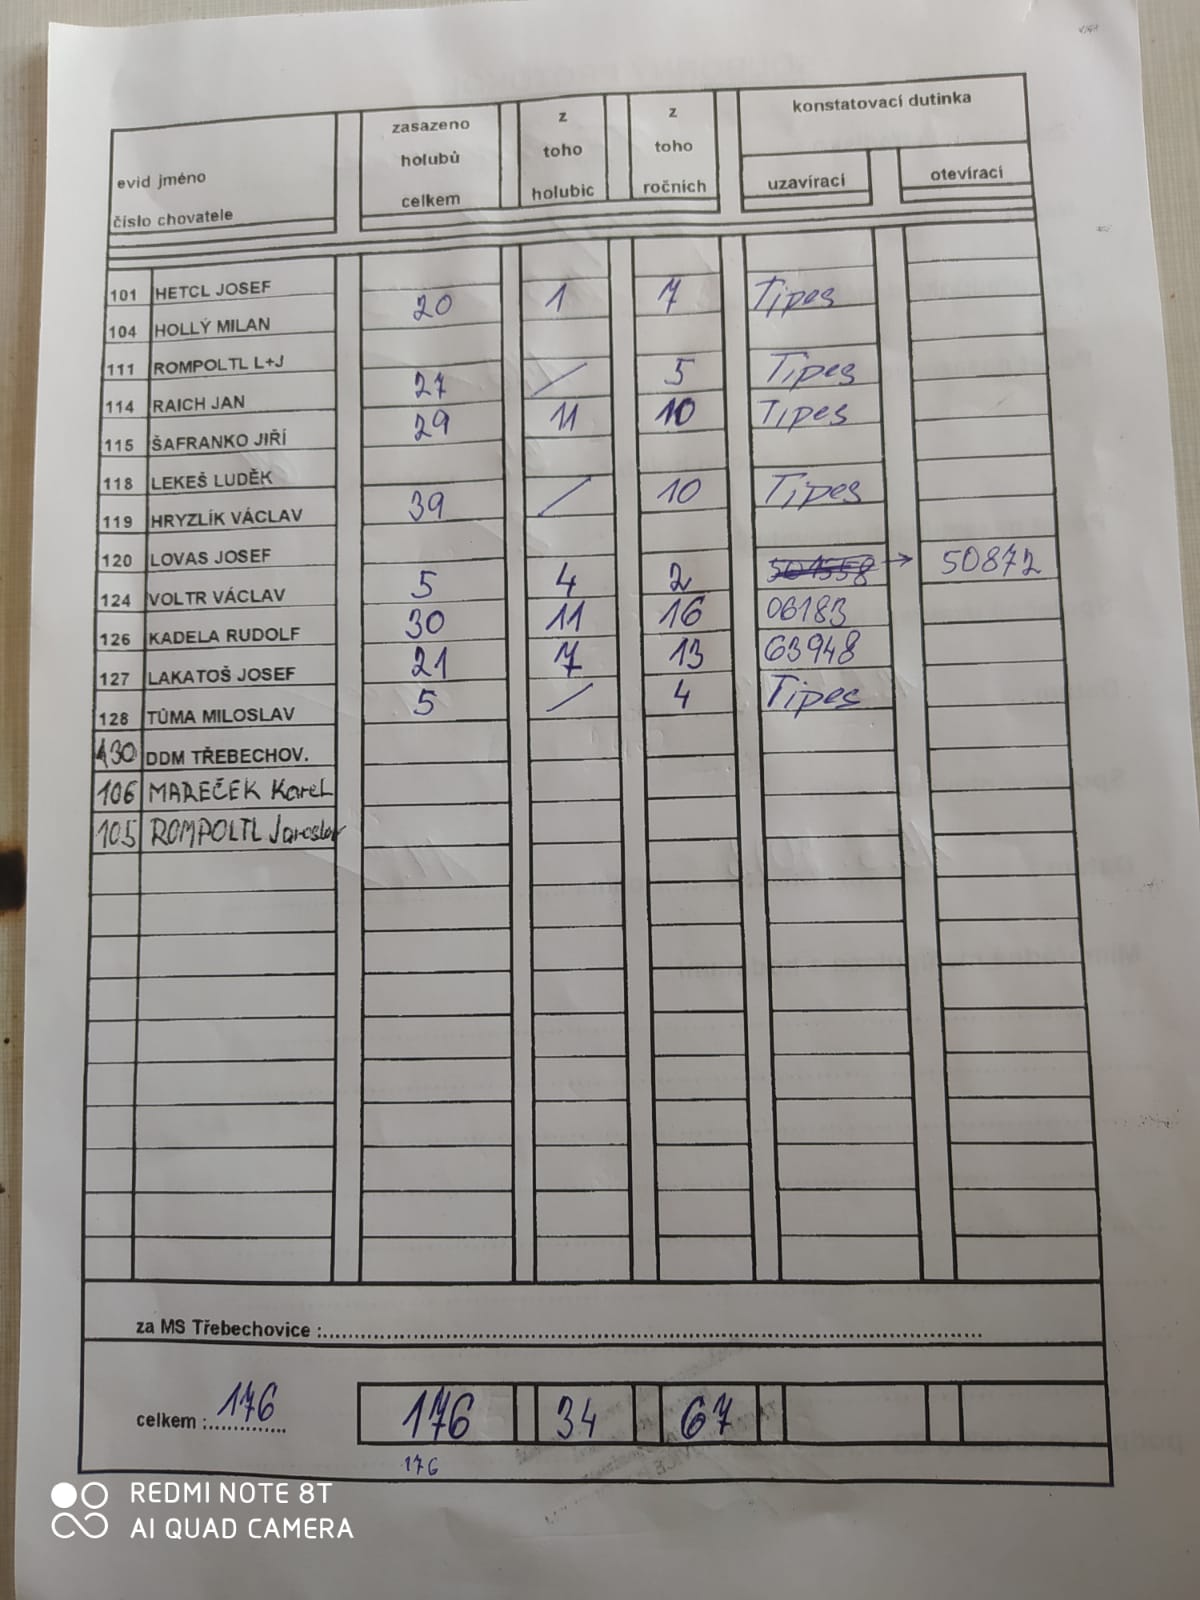 evid jméno
číslo chovatele
zasazeno holubů celkem
z toho holubic
z toho ročních
konstatovací dutinka
uzavírací
otevírací
101 HETCL JOSEF
104 HOLLÝ MILAN 20 1 7 Tipes
111 ROMPOLTL L+J
114 RAICH JAN 27 / 5 Tipes
115 ŠAFRANKO JIŘÍ 29 11 10 Tipes
118 LEKEŠ LUDĚK
119 HRYZLÍK VÁCLAV 39 / 10 Tipes
120 LOVAS JOSEF
124 VOLTR VÁCLAV 5 4 2 → 50872
126 KADELA RUDOLF 30 11 16 06183
127 LAKATOŠ JOSEF 21 7 13 63948
128 TŮMA MILOSLAV 5 / 4 Tipes
130 DDM TŘEBECHOV.
106 MAREČEK Karel
105 ROMPOLTL Jaroslav
za MS Třebechovice :
celkem : 176 176 34 67
176
REDMI NOTE 8T
AI QUAD CAMERA